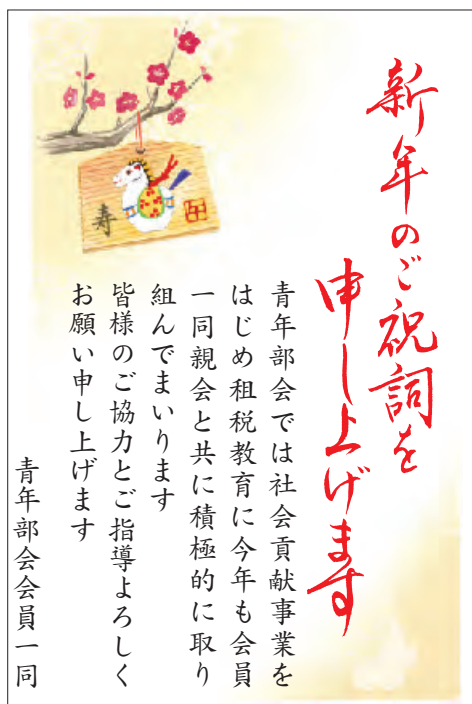 新年のご祝詞を
申し上げます
青年部会では社会貢献事業を
はじめ租税教育に今年も会員
一同親会と共に積極的に取り
組んでまいります
皆様のご協力とご指導よろしく
お願い申し上げます
青年部会会員一同
寿